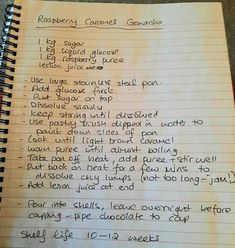 Raspberry Caramel Ganache
1 kg sugar
1 kg liquid glucose
1 kg raspberry puree
lemon juice
- Use large stainless steel pan
- Add glucose first
- Put sugar on top
- Dissolve slowly
- Keep stirring until dissolved
- Use pastry brush dipped in water to
paint down sides of pan
- Cook until light brown caramel
- Warm puree until almost boiling
- Take pan off heat, add puree + stir well
- Put back on heat for a few mins to
dissolve any lumps (not too long - jam!)
- Add lemon juice at end
- Pour into shells, leave overnight before
capping - pipe chocolate to cap
Shelf life 10-12 weeks